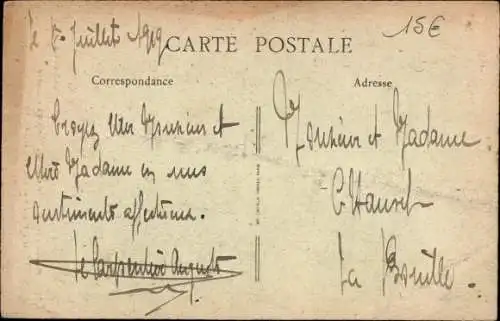 le 5 Juillet 1919
15€
CARTE POSTALE
Correspondance
Adresse
Croyez cher Monsieur et
chère Madame en mes
sentiments affectueux.
Le Carpentier Auguste
Monsieur et Madame
La Bouille.